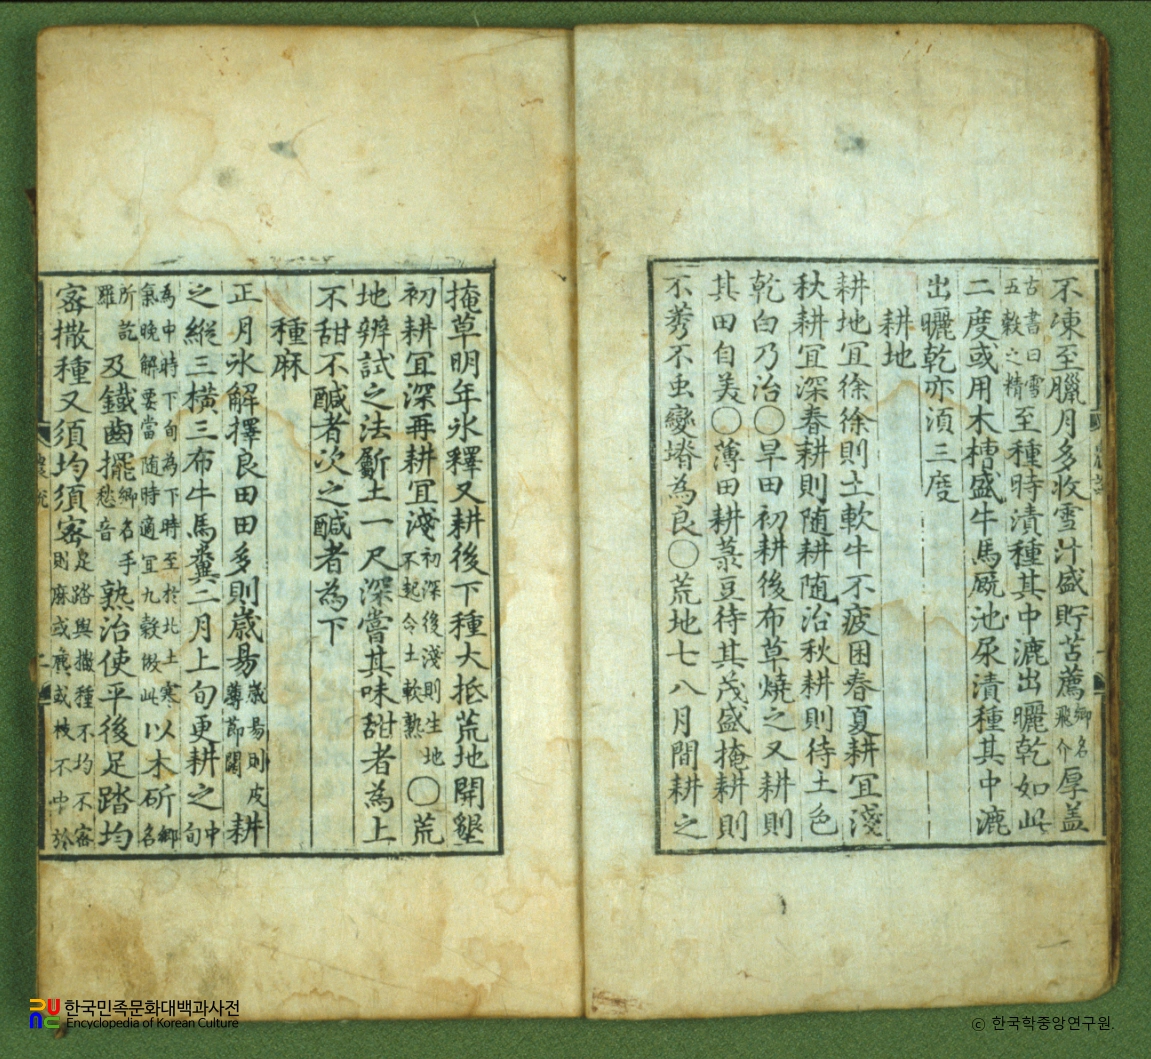 不凍至臘月多收雪汁盛貯苫薦鄕名飛介厚盖
古書曰雪五穀之精至種時漬種其中漉出曬乾如此
二度或用木槽盛牛馬廐池尿漬種其中漉
出曬乾亦須三度
耕地
耕地宜徐徐則土軟牛不疲困春夏耕宜淺
秋耕宜深春耕則随耕随治秋耕則待土色
乾白乃治〇旱田初耕後布草燒之又耕則
其田自美〇薄田耕菉豆待其茂盛掩耕則
不莠不虫變塉為良〇荒地七八月間耕之
掩草明年氷釋又耕後下種大抵荒地開墾
初耕宜深再耕宜淺初深後淺則生地不起令土軟熟〇荒
地辨試之法斸土一尺深嘗其味甜者為上
不甜不醎者次之醎者為下
種麻
正月氷解擇良田田多則歲易歲易則皮薄節闊耕
之縱三橫三布牛馬糞二月上旬更耕之中旬
為中時下旬為下時至於北土寒氣晚解要當随時適宜九穀倣此以木斫鄕名
所訖羅及鐵齒擺鄕名手愁音熟治使平後足踏均
密撒種又須均須密足踏與撒種不均不密則麻或麁或枝不中於
農說
한국민족문화대백과사전
Encyclopedia of Korean Culture
© 한국학중앙연구원.